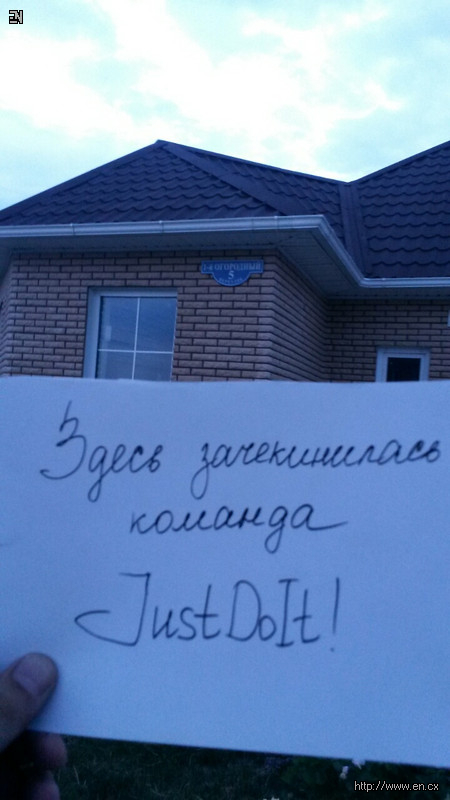 EN
1-й ОГОРОДНЫЙ
5
Здесь зачекинилась
команда
JustDoIt!
http://www.en.cx